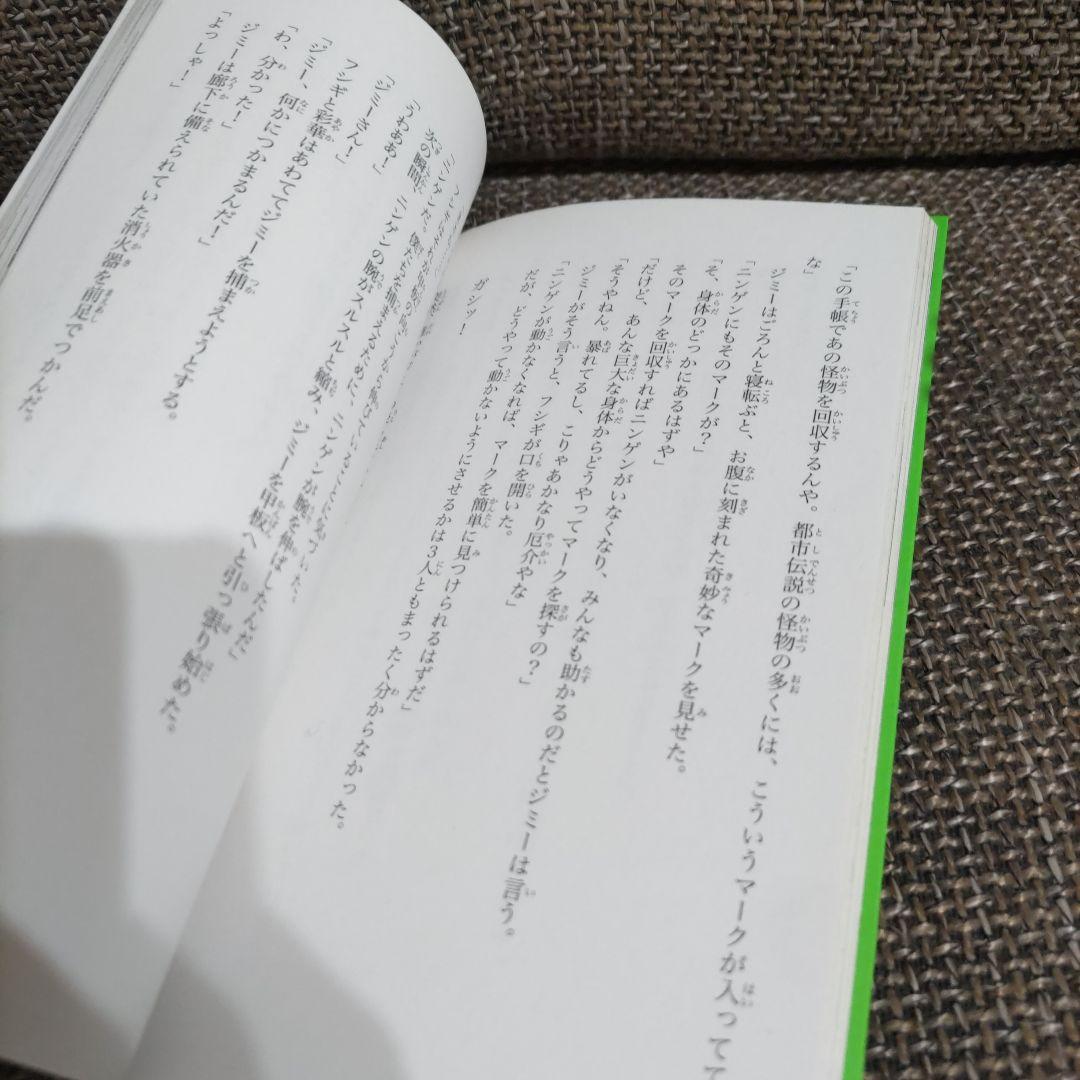 「この手帳であの怪物を回収するんや。都市伝説の怪物の多くには、こういうマークが入ってて
な」
ジミーはごろんと寝転ぶと、お腹に刻まれた奇妙なマークを見せた。
「ニンゲンにもそのマークが？」
「そ、身体のどっかにあるはずや」
そのマークを回収すればニンゲンがいなくなり、みんなも助かるのだとジミーは言う。
「だけど、あんな巨大な身体からどうやってマークを探すの？」
「そうやねん。暴れてるし、こりゃあかなり厄介やな」
ジミーがそう言うと、フシギが口を開いた。
「ニンゲンが動かなくなれば、マークを簡単に見つけられるはずだ」
だが、どうやって動かないようにさせるかは3人ともまったく分からなかった。
ガシッ！
「ニンゲンだ。僕たちを捕まえるために、ニンゲンが腕を伸ばしたんだ」
次の瞬間、ニンゲンの腕がスルスルと縮み、ジミーを甲板へと引っ張り始めた。
「うわああ！」
「ジミーさん！」
フシギと彩華はあわててジミーを捕まえようとする。
「ジミー、何かにつかまるんだ！」
「わ、分かった！」
ジミーは廊下に備えられていた消火器を前足でつかんだ。
「よっしゃ！」